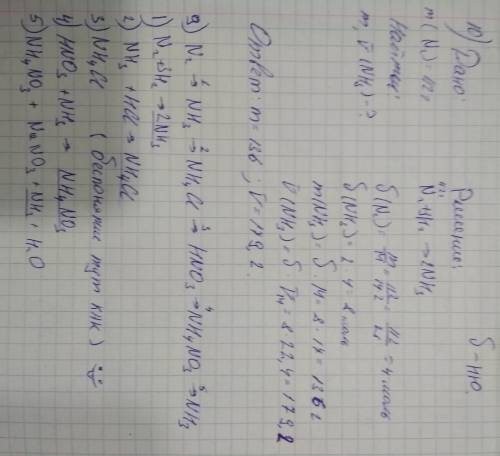 10) Дано:
m(N₂) = 112 г
Найти:
m, V (NH₃) = ?
Решение:
δ - НЮ.
N₂ + H₂ → 2NH₃
δ(N₂) = m/M = 112/14·2 = 112/28 = 4 моль
δ(NH₃) = 2 · 4 = 8 моль
m(NH₃) = δ · 14 = 8 · 14 = 136 г
V(NH₃) = δ · Vм = 8 · 22,4 = 179,2
Ответ: m = 136 ; V = 179,2.
9) N₂ →¹ NH₃ →² NH₄Cl →³ HNO₃ →⁴ NH₄NO₃ →⁵ NH₃
1) N₂ + 3H₂ → 2NH₃
2) NH₃ + HCl → NH₄Cl
3) NH₄Cl
4) HNO₃ + NH₃ → NH₄NO₃
5) NH₄NO₃ + NaNO₃ + NH₃ + H₂O